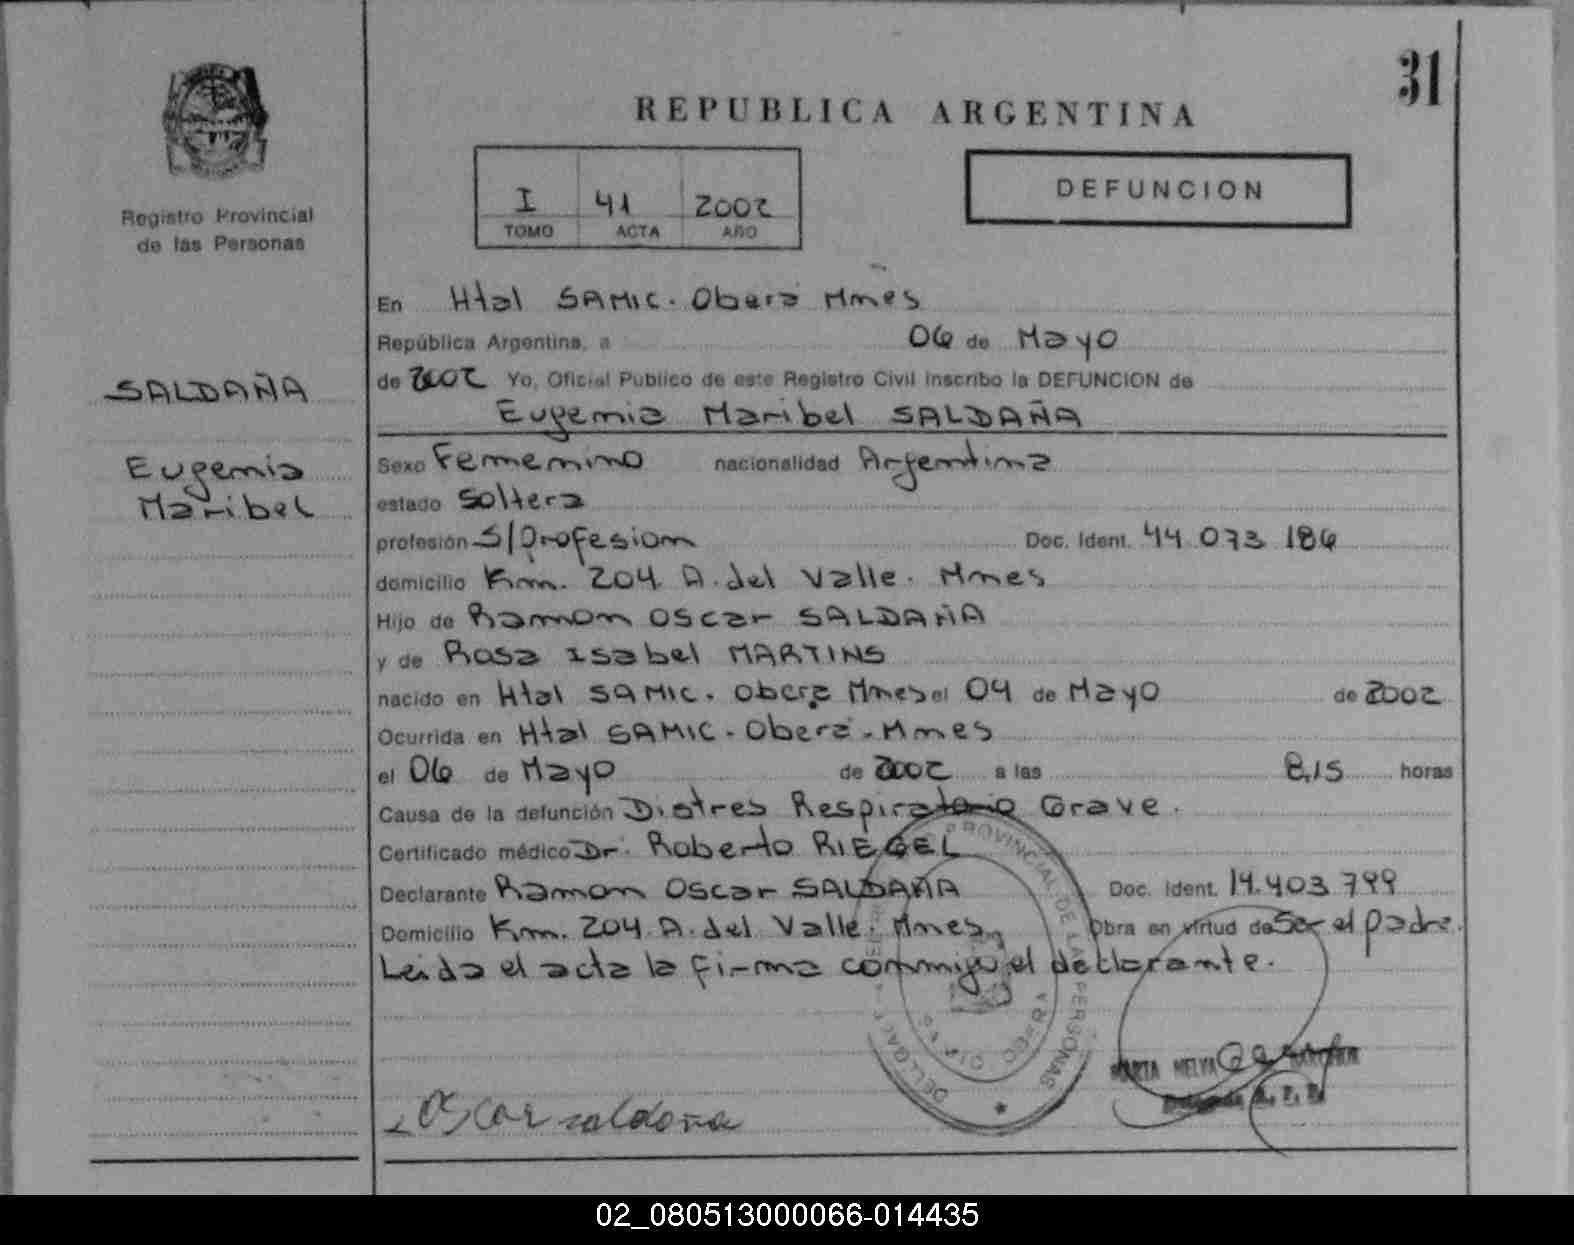 31
REPUBLICA ARGENTINA
I 41 2002
TOMO ACTA AÑO
DEFUNCION
Registro Provincial
de las Personas
SALDAÑA
Eugenia
Maribel
En Htal SAMIC. Oberá Mnes
República Argentina, a 06 de Mayo
de 2002 Yo, Oficial Publico de este Registro Civil inscribo la DEFUNCION de
Eugenia Maribel SALDAÑA
Sexo Femenino nacionalidad Argentina
estado Soltera
profesión S/Profesion Doc. Ident. 44 073 186
domicilio Km. 204 A. del Valle. Mnes
Hijo de Ramon Oscar SALDAÑA
y de Rosa Isabel MARTINS
nacido en Htal SAMIC. Oberá Mnes el 04 de Mayo de 2002
Ocurrida en Htal SAMIC. Oberá. Mnes
el 06 de Mayo de 2002 a las 8,15 horas
Causa de la defunción Distres Respiratorio Grave.
Certificado médico Dr. Roberto RIEGEL
Declarante Ramon Oscar SALDAÑA Doc. Ident. 14.403 799
Domicilio Km. 204 A. del Valle. Mnes, Obra en virtud de Ser el padre.
Leida el acta la firma conmigo el declarante.
PROVINCIAL DE LAS PERSONAS
Oscar saldaña
02_080513000066-014435